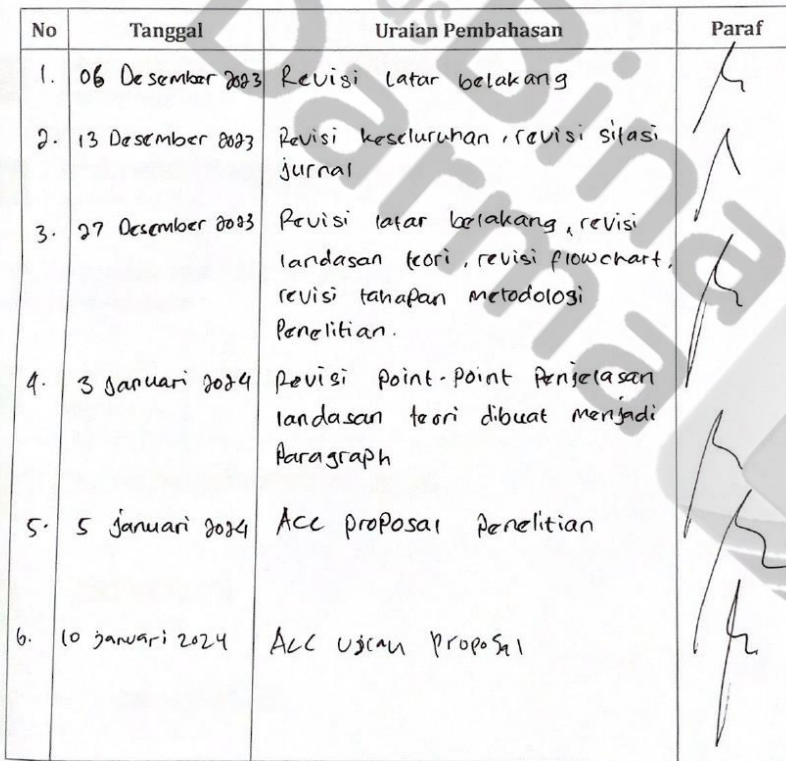 No Tanggal Uraian Pembahasan Paraf
1. 06 Desember 2023 Revisi latar belakang
2. 13 Desember 2023 Revisi keseluruhan, revisi sitasi
jurnal
3. 27 Desember 2023 Revisi latar belakang, revisi
landasan teori, revisi flowchart,
revisi tahapan metodologi
Penelitian.
4. 3 Januari 2024 Revisi Point-Point Penjelasan
landasan teori dibuat menjadi
Paragraph
5. 5 Januari 2024 Acc proposal Penelitian
6. 10 Januari 2024 Acc ujian proposal
Bina
Darma